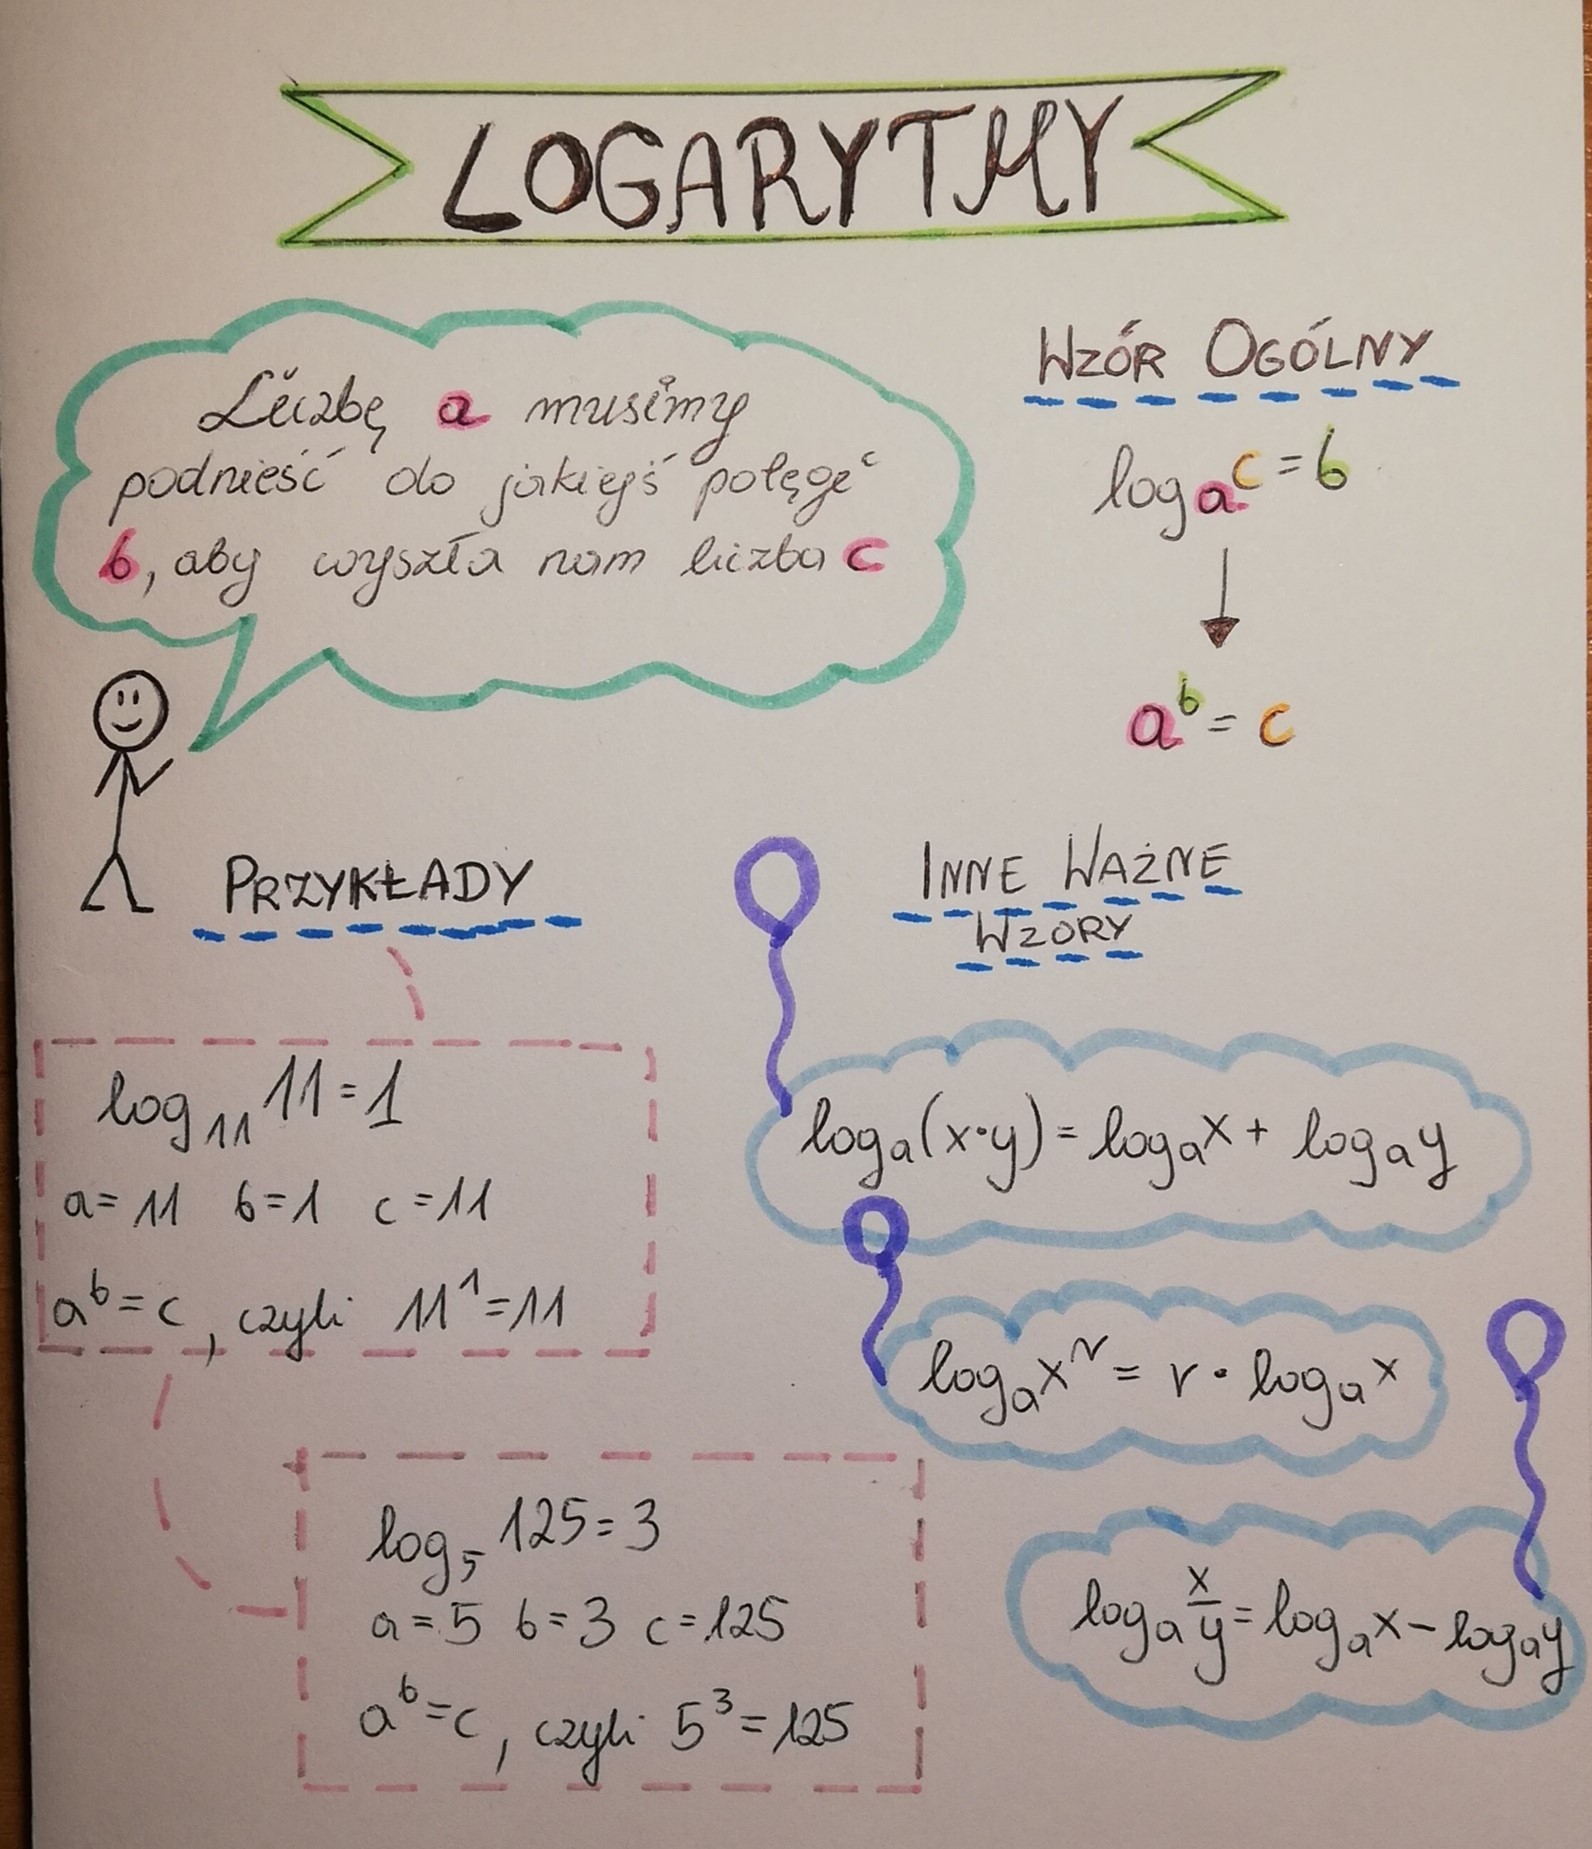 LOGARYTMY
Liczbę a musimy
podnieść do jakiejś potęgi
b, aby wyszła nam liczba c
WZÓR OGÓLNY
logₐc = b
aᵇ = c
PRZYKŁADY
log₁₁ 11 = 1
a = 11 b = 1 c = 11
aᵇ = c, czyli 11¹ = 11
log₅ 125 = 3
a = 5 b = 3 c = 125
aᵇ = c, czyli 5³ = 125
INNE WAŻNE
WZORY
logₐ(x·y) = logₐx + logₐy
logₐxʳ = r · logₐx
logₐ x/y = logₐx − logₐy